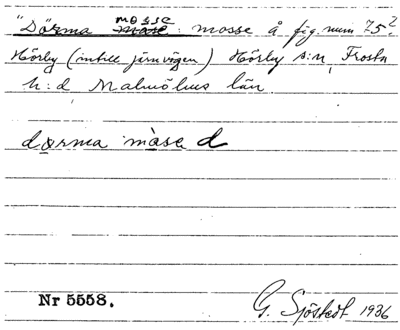 "Dörma mosse mase: mosse å fig. num 75?
Hörby (intill järnvägen) Hörby s:n, Frosta
h:d Malmöhus län
dorma màse d
Nr 5558. G. Sjöstedt 1936